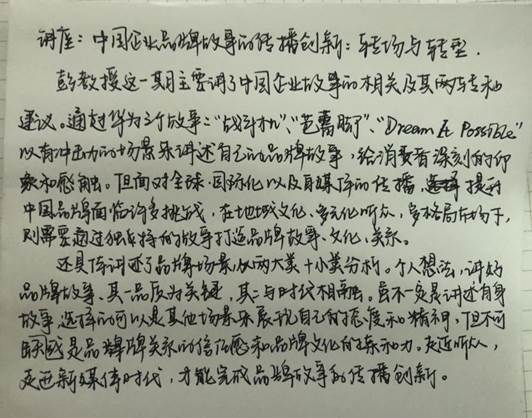 讲座：中国企业品牌故事的传播创新：转场与转型.
彭教授这一期主要讲了中国企业故事的相关及其两转和
建议。通过华为三个故事：“战斗机”、“芭蕾脚”、“Dream It Possible”
以有冲击力的场景来讲述自己的品牌故事，给消费者深刻的印
象和感触。但面对全球、国际化以及自媒体的传播，提到
中国品牌面临许多挑战，在地域文化、多元化听众，多格局市场下，
则需要通过独特的故事打造品牌故事、文化、关系。
还具体讲述了品牌场景以两大类十小类分析。个人想法，讲好
品牌故事、其一品质为关键，其二与时代相融。虽不一定是讲述自身
故事，选择的可以是其他场景来展现自己的态度和精神，但不可
是品牌关系的信任感和品牌文化的亲和力。走近听众，
走进新媒体时代，才能完成品牌故事的传播创新。